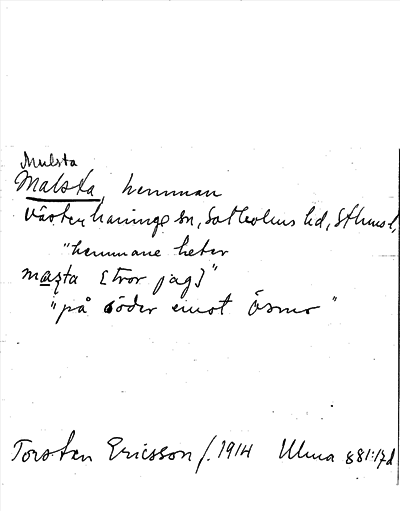 Mulsta
Malsta, hemman
Västerhaninge sn, Sotholms hd, Sthms l,
"hemmane heter
maṣta [tror jag]"
"på söder emot Ösmo"
Torsten Ericsson f. 1914 Ulma 881:17d